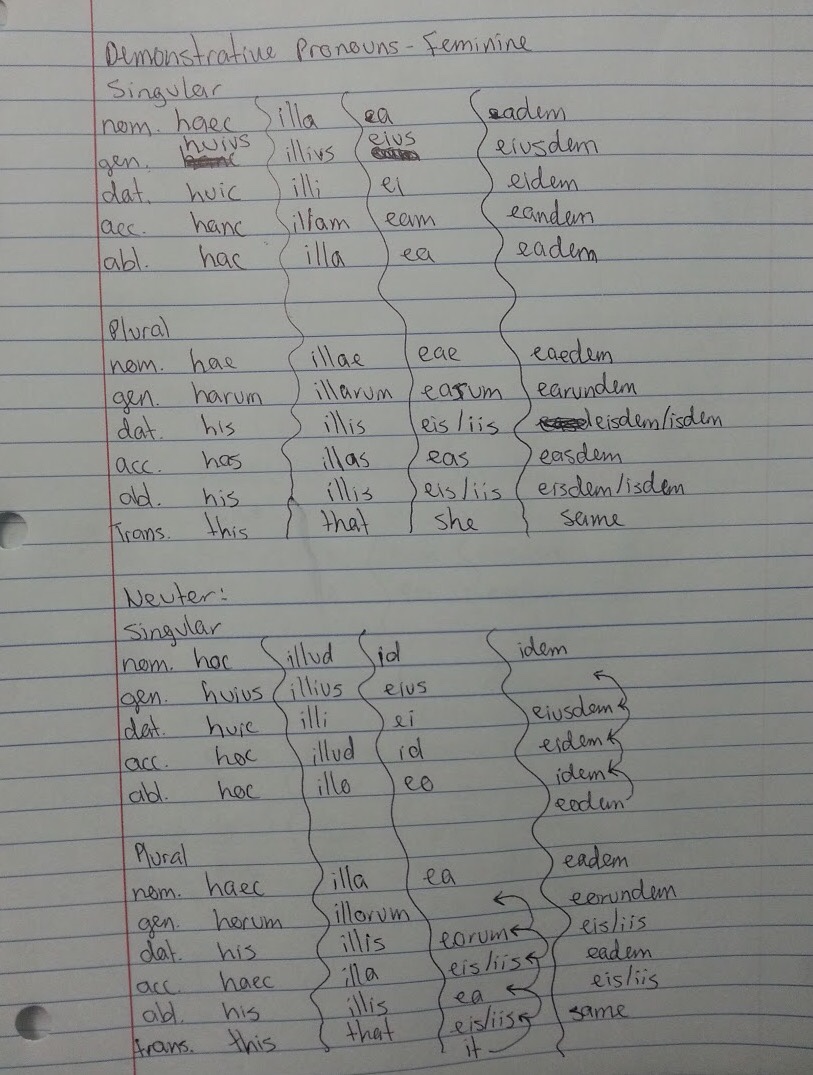 Demonstrative Pronouns - Feminine
Singular
nom. haec illa ea eadem
gen. huius illius eius eiusdem
dat. huic illi ei eidem
acc. hanc illam eam eandem
abl. hac illa ea eadem
Plural
nom. hae illae eae eaedem
gen. harum illarum earum earundem
dat. his illis eis/iis eisdem/isdem
acc. has illas eas easdem
abl. his illis eis/iis eisdem/isdem
Trans. this that she same
Neuter:
Singular
nom. hoc illud id idem
gen. huius illius eius
eiusdem
dat. huic illi ei
eidem
acc. hoc illud id
idem
abl. hoc illo eo
eodem
Plural
eadem
nom. haec illa ea
eorundem
gen. horum illorum
eis/iis
dat. his illis eorum
eadem
acc. haec illa eis/iis
eis/iis
abl. his illis ea
same
trans. this that eis/iis
it